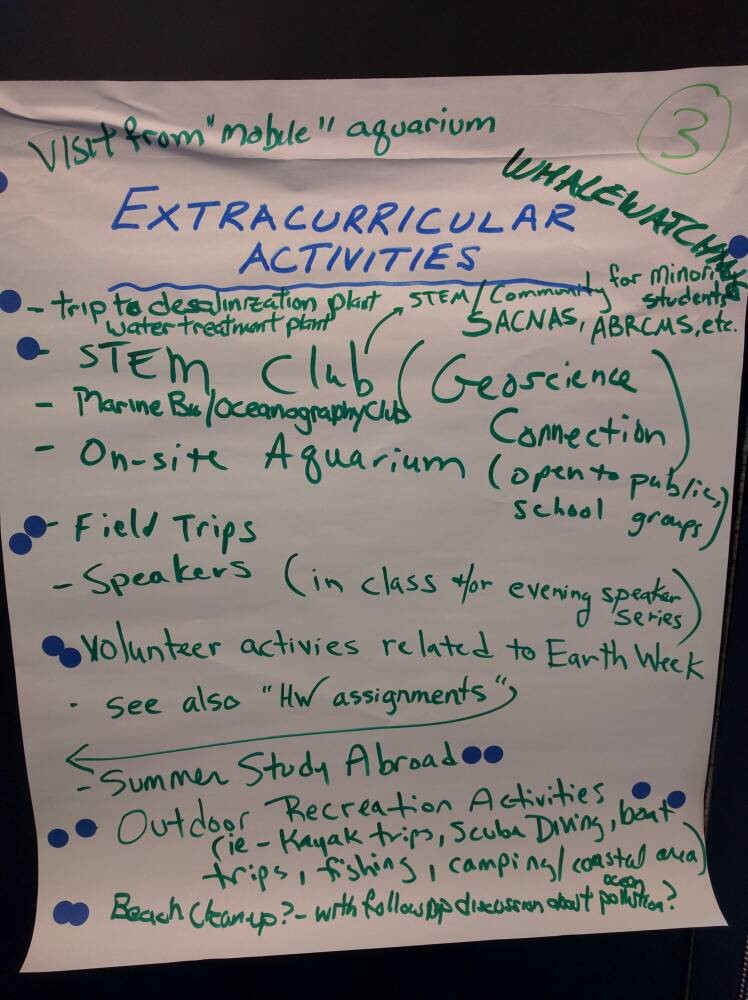 3
Visit from "mobile" aquarium
WHALEWATCHING
EXTRACURRICULAR
ACTIVITIES
- trip to desalinization plant
water treatment plant
STEM / Community for minority
students
SACNAS, ABRCMS, etc.
- STEM Club (Geoscience
Connection)
- Marine Bio/Oceanography Club
- On-site Aquarium (open to public,
school groups)
- Field Trips
- Speakers (in class +/or evening speaker
series)
Volunteer activies related to Earth Week
· see also "HW assignments"
- Summer Study Abroad
Outdoor Recreation Activities
(ie - Kayak trips, Scuba Diving, boat
trips, fishing, camping/coastal area)
Beach Cleanup? - with follow up discussion about ocean pollution?